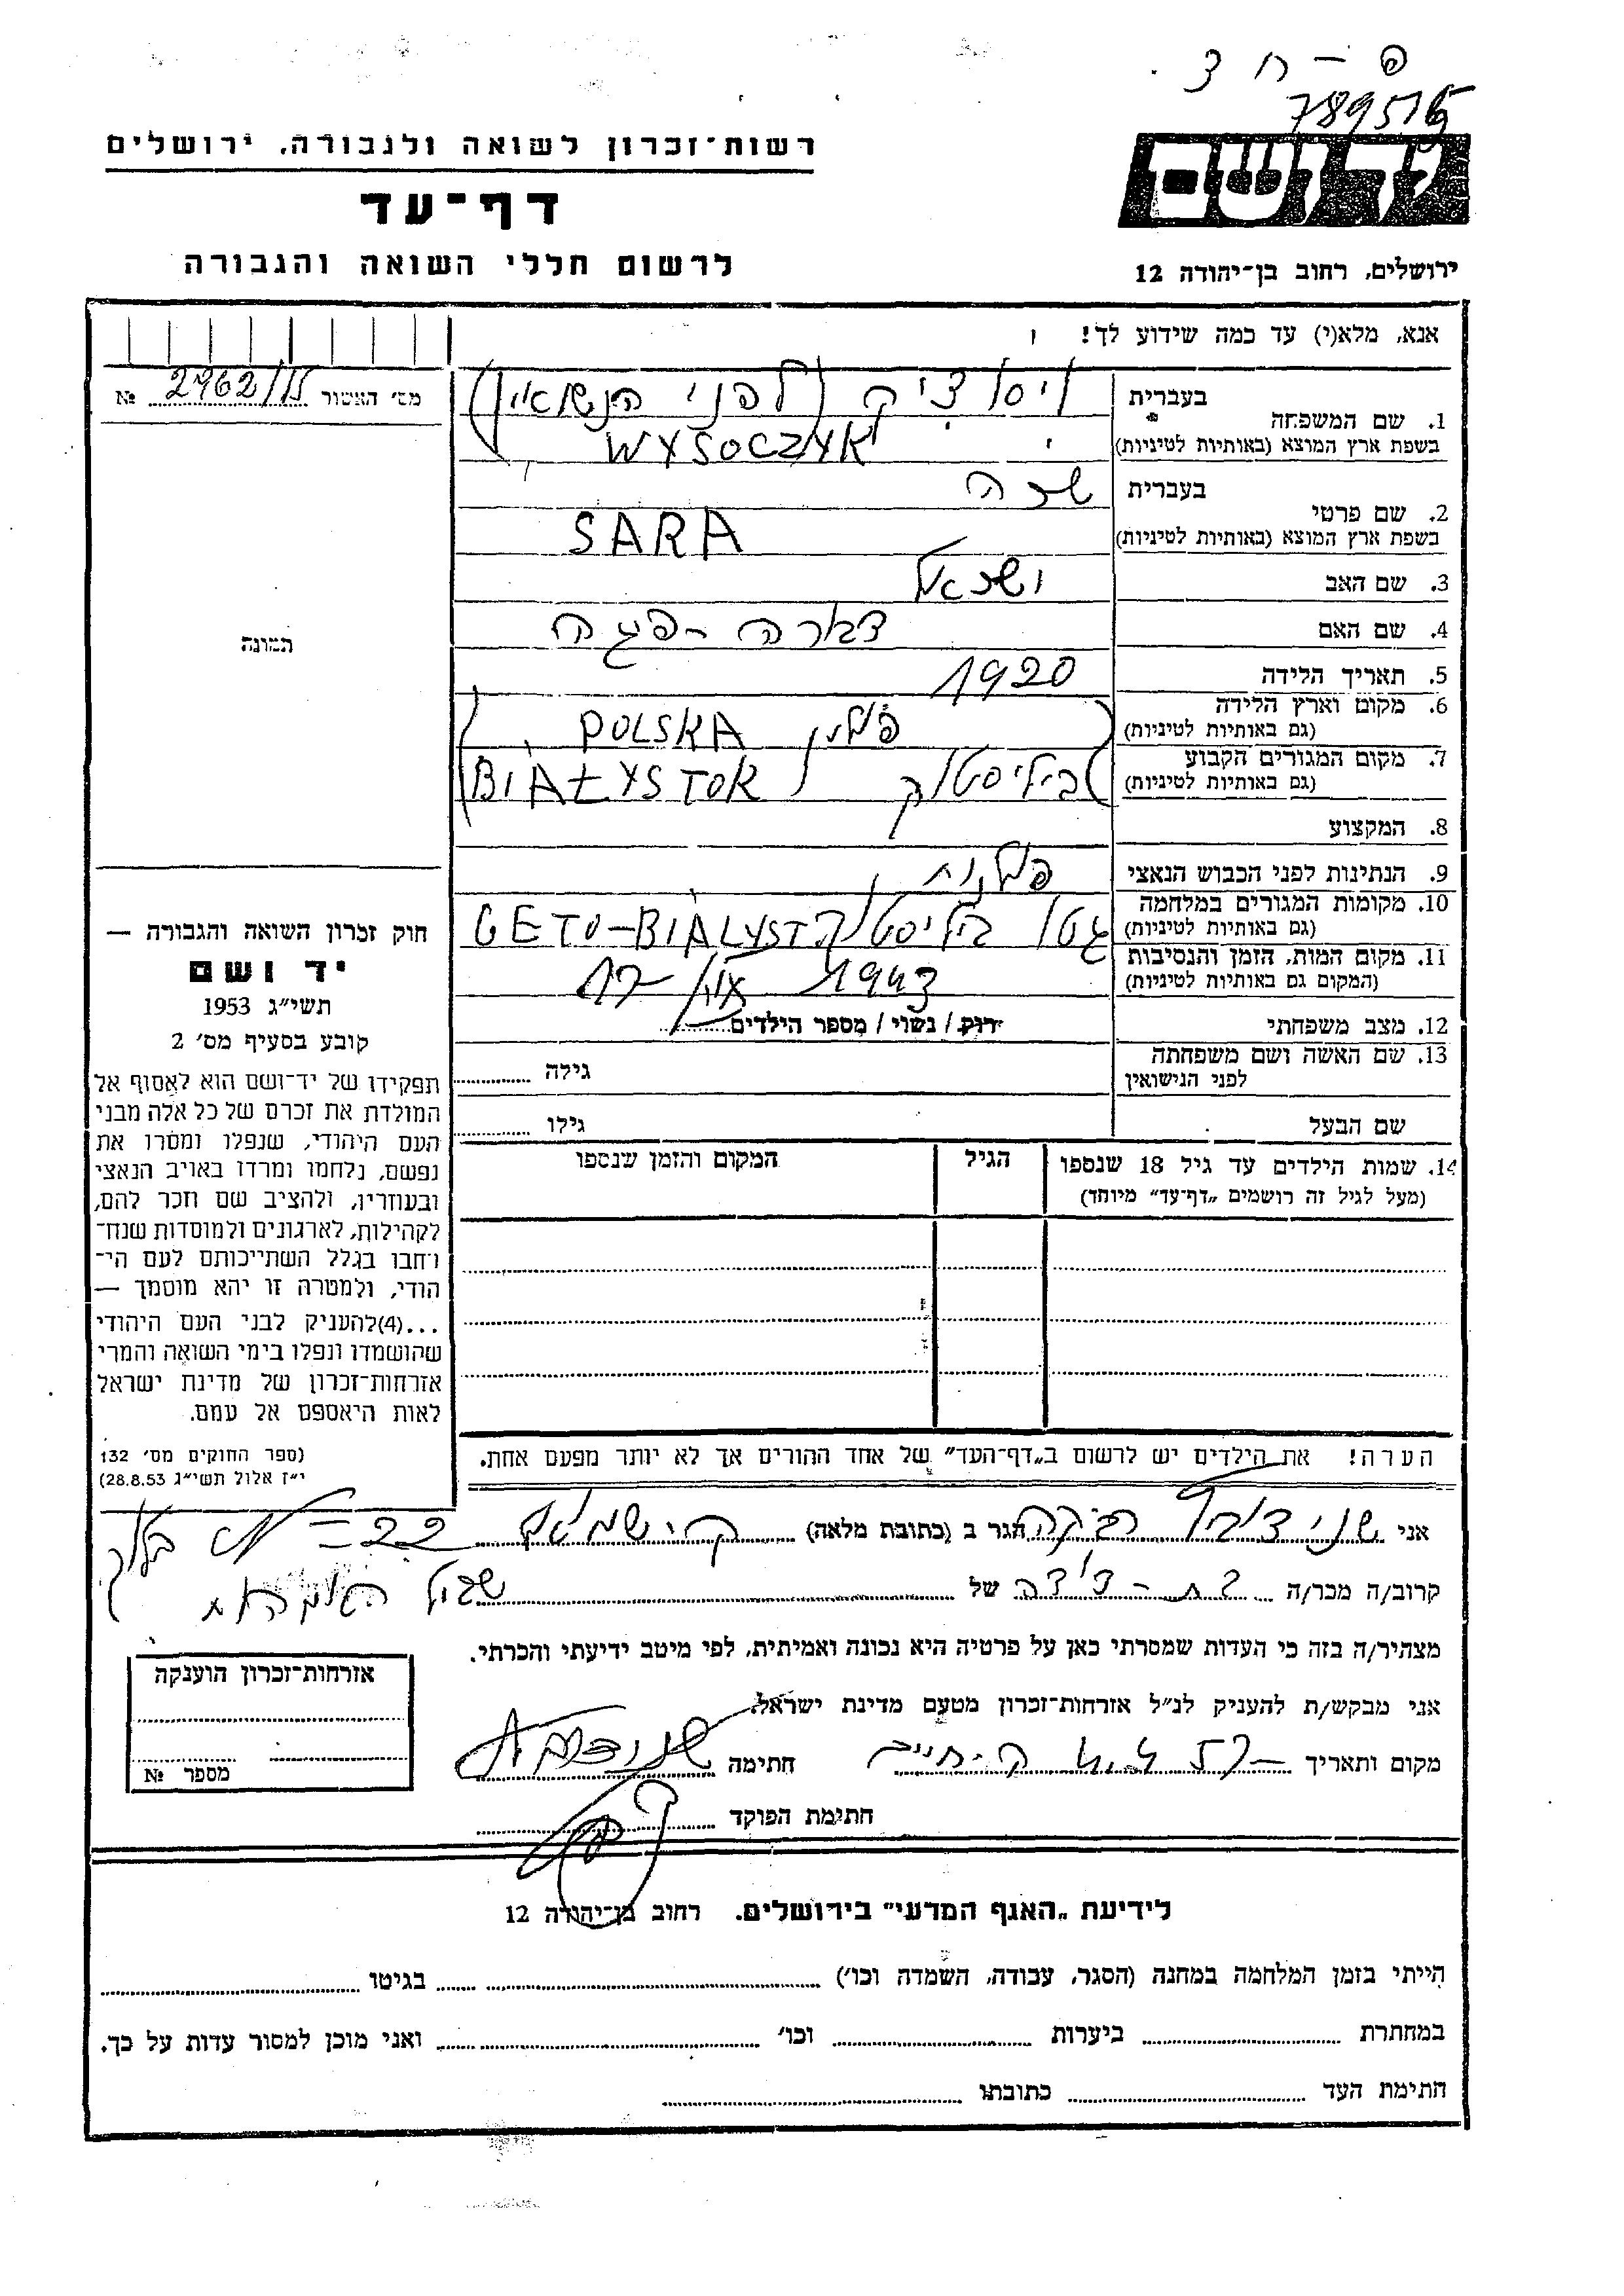 פ - ח צ
789516
יד ושם
רשות־זכרון לשואה ולגבורה. ירושלים
דף־עד
לרשום חללי השואה והגבורה
ירושלים, רחוב בן־יהודה 12
אנא, מלא(י) עד כמה שידוע לך!
מס׳ האשור № 2962/15
1. שם המשפחה בעברית ויסוצ׳יק (לפני הנשואין)
בשפת ארץ המוצא (באותיות לטיניות) WYSOCZYK
2. שם פרטי בעברית שרה
בשפת ארץ המוצא (באותיות לטיניות) SARA
3. שם האב ישראל
4. שם האם דבורה - פיגה
תמונה
5. תאריך הלידה 1920
6. מקום וארץ הלידה
(גם באותיות לטיניות) פולין POLSKA
7. מקום המגורים הקבוע
(גם באותיות לטיניות) ביליסטוק BIAŁYSTOK
8. המקצוע
9. הנתינות לפני הכבוש הנאצי פולנית
10. מקומות המגורים במלחמה
(גם באותיות לטיניות) גטו ביליסטוק GETO-BIALYST
11. מקום המות, הזמן והנסיבות
(המקום גם באותיות לטיניות) 1943
12. מצב משפחתי רווק / נשוי / מספר הילדים
13. שם האשה ושם משפחתה
לפני הנישואין גילה
שם הבעל גילו
14. שמות הילדים עד גיל 18 שנספו הגיל המקום והזמן שנספו
(מעל לגיל זה רושמים „דף־עד״ מיוחד)
חוק זכרון השואה והגבורה —
יד ושם
תשי״ג 1953
קובע בסעיף מס׳ 2
תפקידו של יד־ושם הוא לאסוף אל
המולדת את זכרם של כל אלה מבני
העם היהודי, שנפלו ומסרו את
נפשם, נלחמו ומרדו באויב הנאצי
ובעוזריו, ולהציב שם וזכר להם,
לקהילות, לארגונים ולמוסדות שנח־
רבו בגלל השתייכותם לעם הי־
הודי, ולמטרה זו יהא מוסמך —
...(4)להעניק לבני העם היהודי
שהושמדו ונפלו בימי השואה והמרי
אזרחות־זכרון של מדינת ישראל
לאות היאספם אל עמם.
(ספר החוקים מס׳ 132
י״ז אלול תשי״ג 28.8.53)
הערה! את הילדים יש לרשום ב„דף־העד״ של אחד ההורים אך לא יותר מפעם אחת.
אני רבקה הגר ב (כתובת מלאה) 22
קרוב/ה מכר/ה בת - דודה של
מצהיר/ה בזה כי העדות שמסרתי כאן על פרטיה היא נכונה ואמיתית, לפי מיטב ידיעתי והכרתי.
אני מבקש/ת להעניק לנ״ל אזרחות־זכרון מטעם מדינת ישראל.
מקום ותאריך חתימה
חתימת הפוקד
אזרחות־זכרון הוענקה
מספר №
לידיעת „האגף המדעי״ בירושלים. רחוב בן־יהודה 12
הייתי בזמן המלחמה במחנה (הסגר, עבודה, השמדה וכו׳) בגיטו
במחתרת ביערות וכו׳ ואני מוכן למסור עדות על כך.
חתימת העד כתובתו